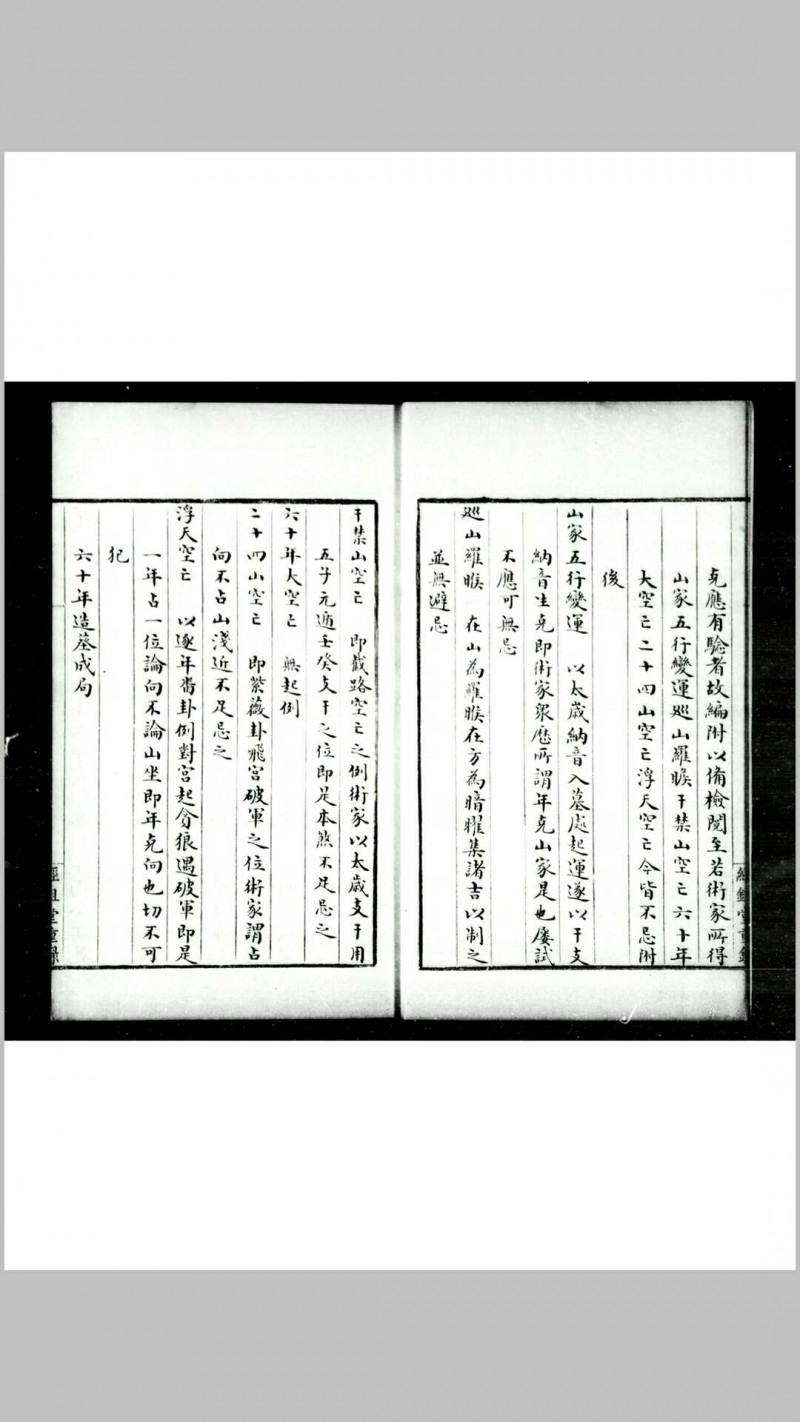 克應有驗者故編附以俻檢閱至若術家所得
山家五行變運巡山羅睺干禁山空亡六十年
大空亡二十四山空亡浮天空亡今皆不忌附
後
山家五行變運　以太歲納音入墓處起運遂以干支
納音生克即術家眾歷所謂年克山家是也屢試
不應可無忌
巡山羅睺　在山為羅睺在方為暗曜集諸吉以制之
並無避忌
干禁山空亡　即截路空亡之例術家以太歲支干用
五子元遁壬癸支干之位即是本煞不足忌之
六十年大空亡　無起例
二十四山空亡　即紫薇卦飛宮破軍之位術家謂占
向不占山淺近不足忌之
浮天空亡　以逐年畨卦例對宮起貪狼遇破軍即是
一年占一位論向不論山坐即年克向也切不可
犯
六十年造墓成局